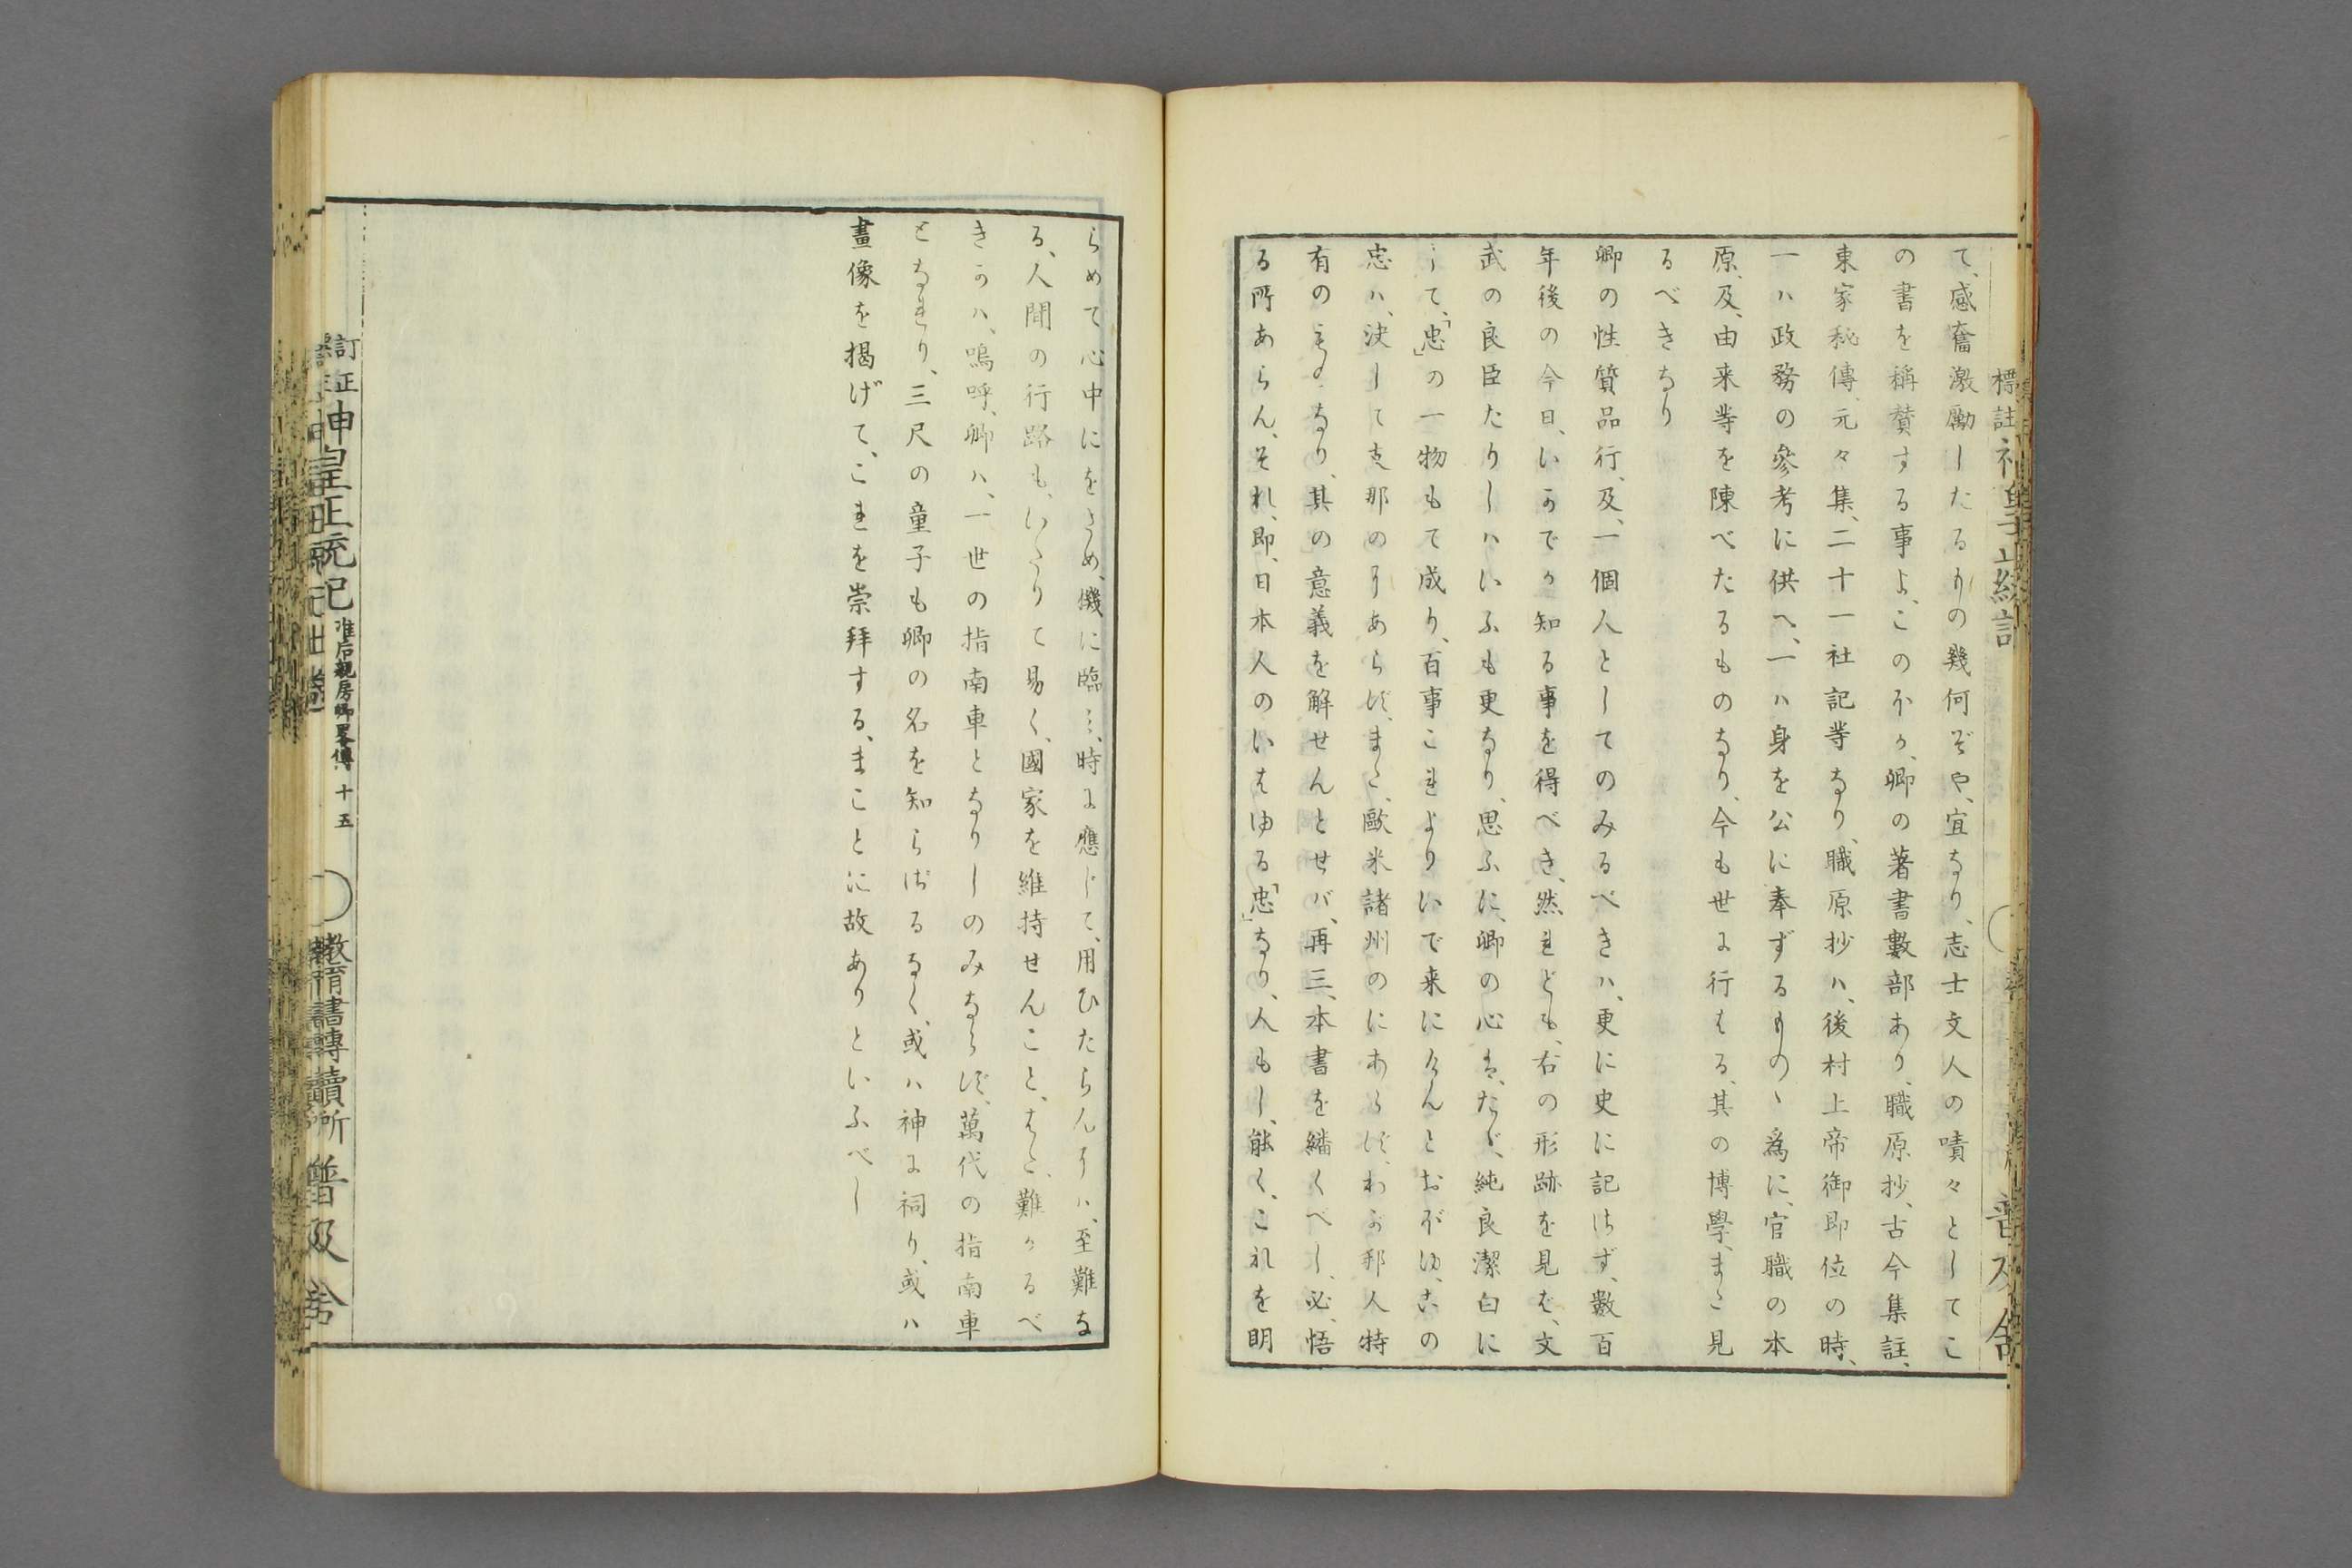 標註
て、感奮激勵したるもの幾何ぞや、宜なり、志士文人の嘖々としてこ
の書を稱賛する事よ、このほか、卿の著書數部あり、職原抄、古今集註、
東家秘傳、元々集、二十一社記等なり、職原抄ハ、後村上帝御即位の時、
一ハ政務の參考に供へ、一ハ身を公に奉ずるものゝ爲に、官職の本
原、及、由来等を陳べたるものなり、今も世に行はる、其の博學、また見
るべきなり
卿の性質品行、及、一個人としてのみるべきハ、更に史に記さず、數百
年後の今日、いかでか知る事を得べき、然れども、右の形跡を見ば、文
武の良臣たりしハいふも更なり、思ふに、卿の心は、たゞ、純良潔白に
して、「忠」の一物もて成り、百事これよりいで来にけんとおぼゆ、この
忠ハ、決して支那の**に**あらず、また、歐米諸州のにあらず、わが邦人特
有のものなり、其の意義を解せんとせバ、再三、本書を繙くべし、必、悟
る所あらん、それ、即、日本人のいはゆる「忠」なり、人もし、能く、これを明
らめて心中にをさめ、機に臨ミ、時に應じて、用ひたらんにハ、至難な
る、人間の行路も、いたりて易く、國家を維持せんこと、はた、難かるべ
きかハ、嗚呼、卿ハ、一世の指南車となりしのみならず、萬代の指南車
となれり、三尺の童子も卿の名を知らざるなく、或ハ神に祠り、或ハ
畫像を掲げて、これを崇拜する、まことに故ありといふべし
訂正
神皇正統記
准后親房卿畧傳
十五
教育書轉讀所
普及舍